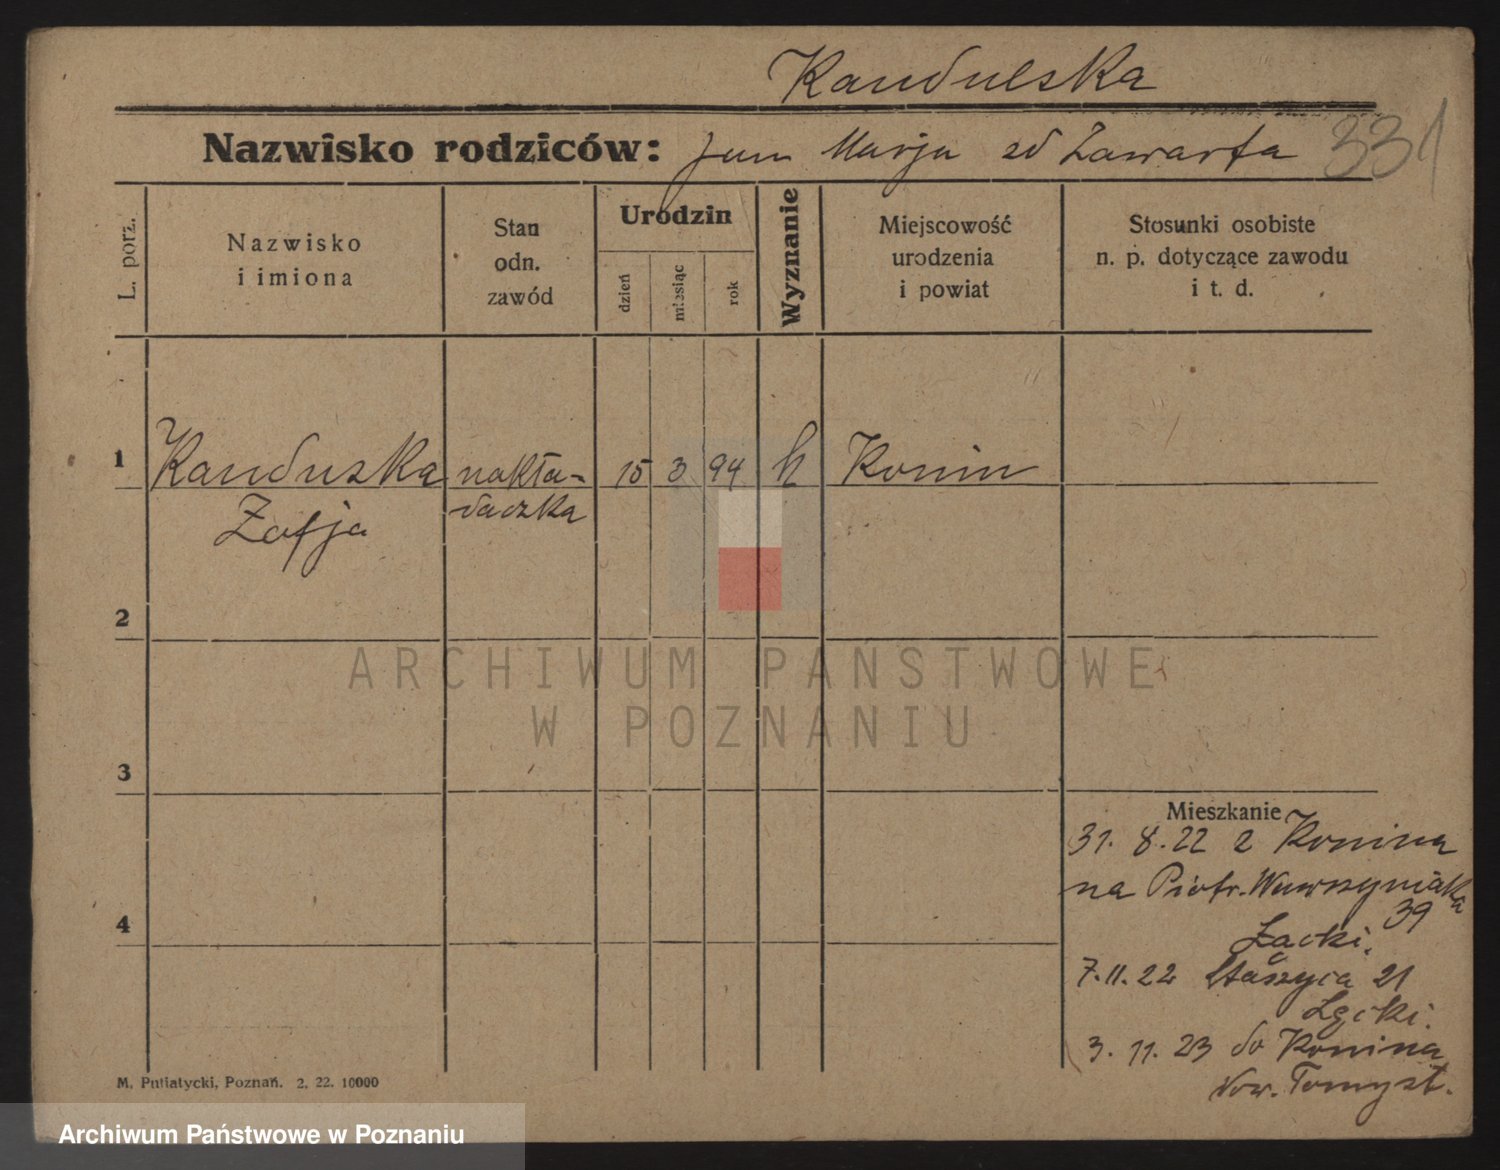 Kandulska
Nazwisko rodziców: Jan Marja zd Zawarta 331
L. porz.
Nazwisko
i imiona
Stan
odn.
zawód
Urodzin
dzień
miesiąc
rok
Wyznanie
Miejscowość
urodzenia
i powiat
Stosunki osobiste
n. p. dotyczące zawodu
i t. d.
1 Kanduska nakła- 15 3 94 k Konin
Zofja daczka
2
ARCHIWUM PAŃSTWOWE
W POZNANIU
3
Mieszkanie
31. 8. 22 z Konina
na Piotr. Wawrzyniaka
39
4
Łącki.
7. 11. 22 Staszyca 21
Łącki.
3. 11. 23 do Konina
Now. Tomysl.
M. Putiatycki, Poznań. 2. 22. 10000
Archiwum Państwowe w Poznaniu